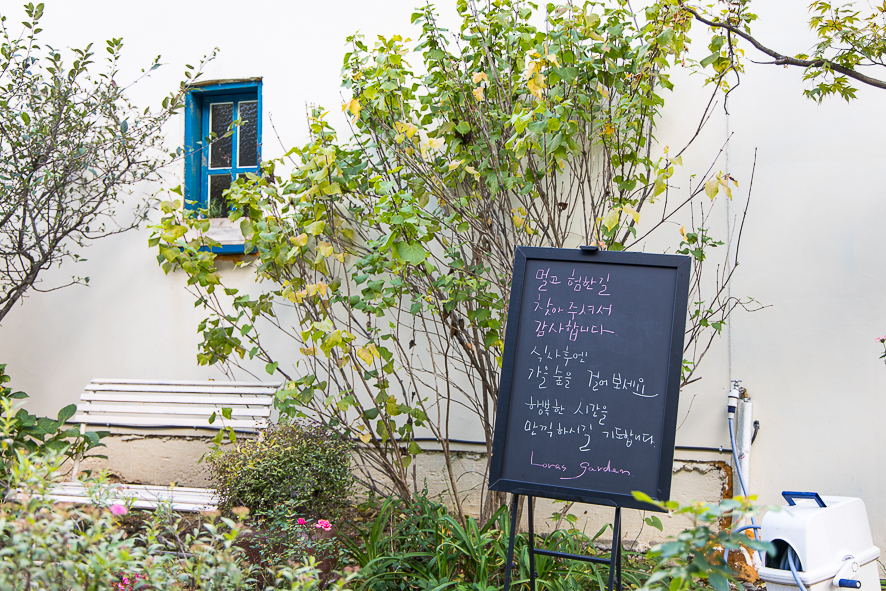 멀고 험한길
찾아 주셔서
감사합니다
식사후엔
가을 숲을 걸어 보세요
행복한 시간을
만끽하시길 기도합니다.
Loras garden